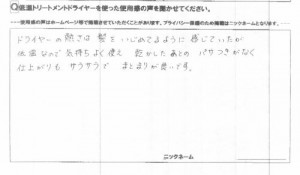 Q低温トリートメントドライヤーを使った使用感の声を聞かせてください。
使用感の声はホームページ等で掲載させていただくことがあります。プライバシー保護のため掲載はニックネームとなります。
ドライヤーの熱さは 髪を いじめてるように 感じていたが
低温なので気持ちよく使え 乾かしたあとの パサつきがなく
仕上がりも サラサラで まとまりが良いです。
ニックネーム